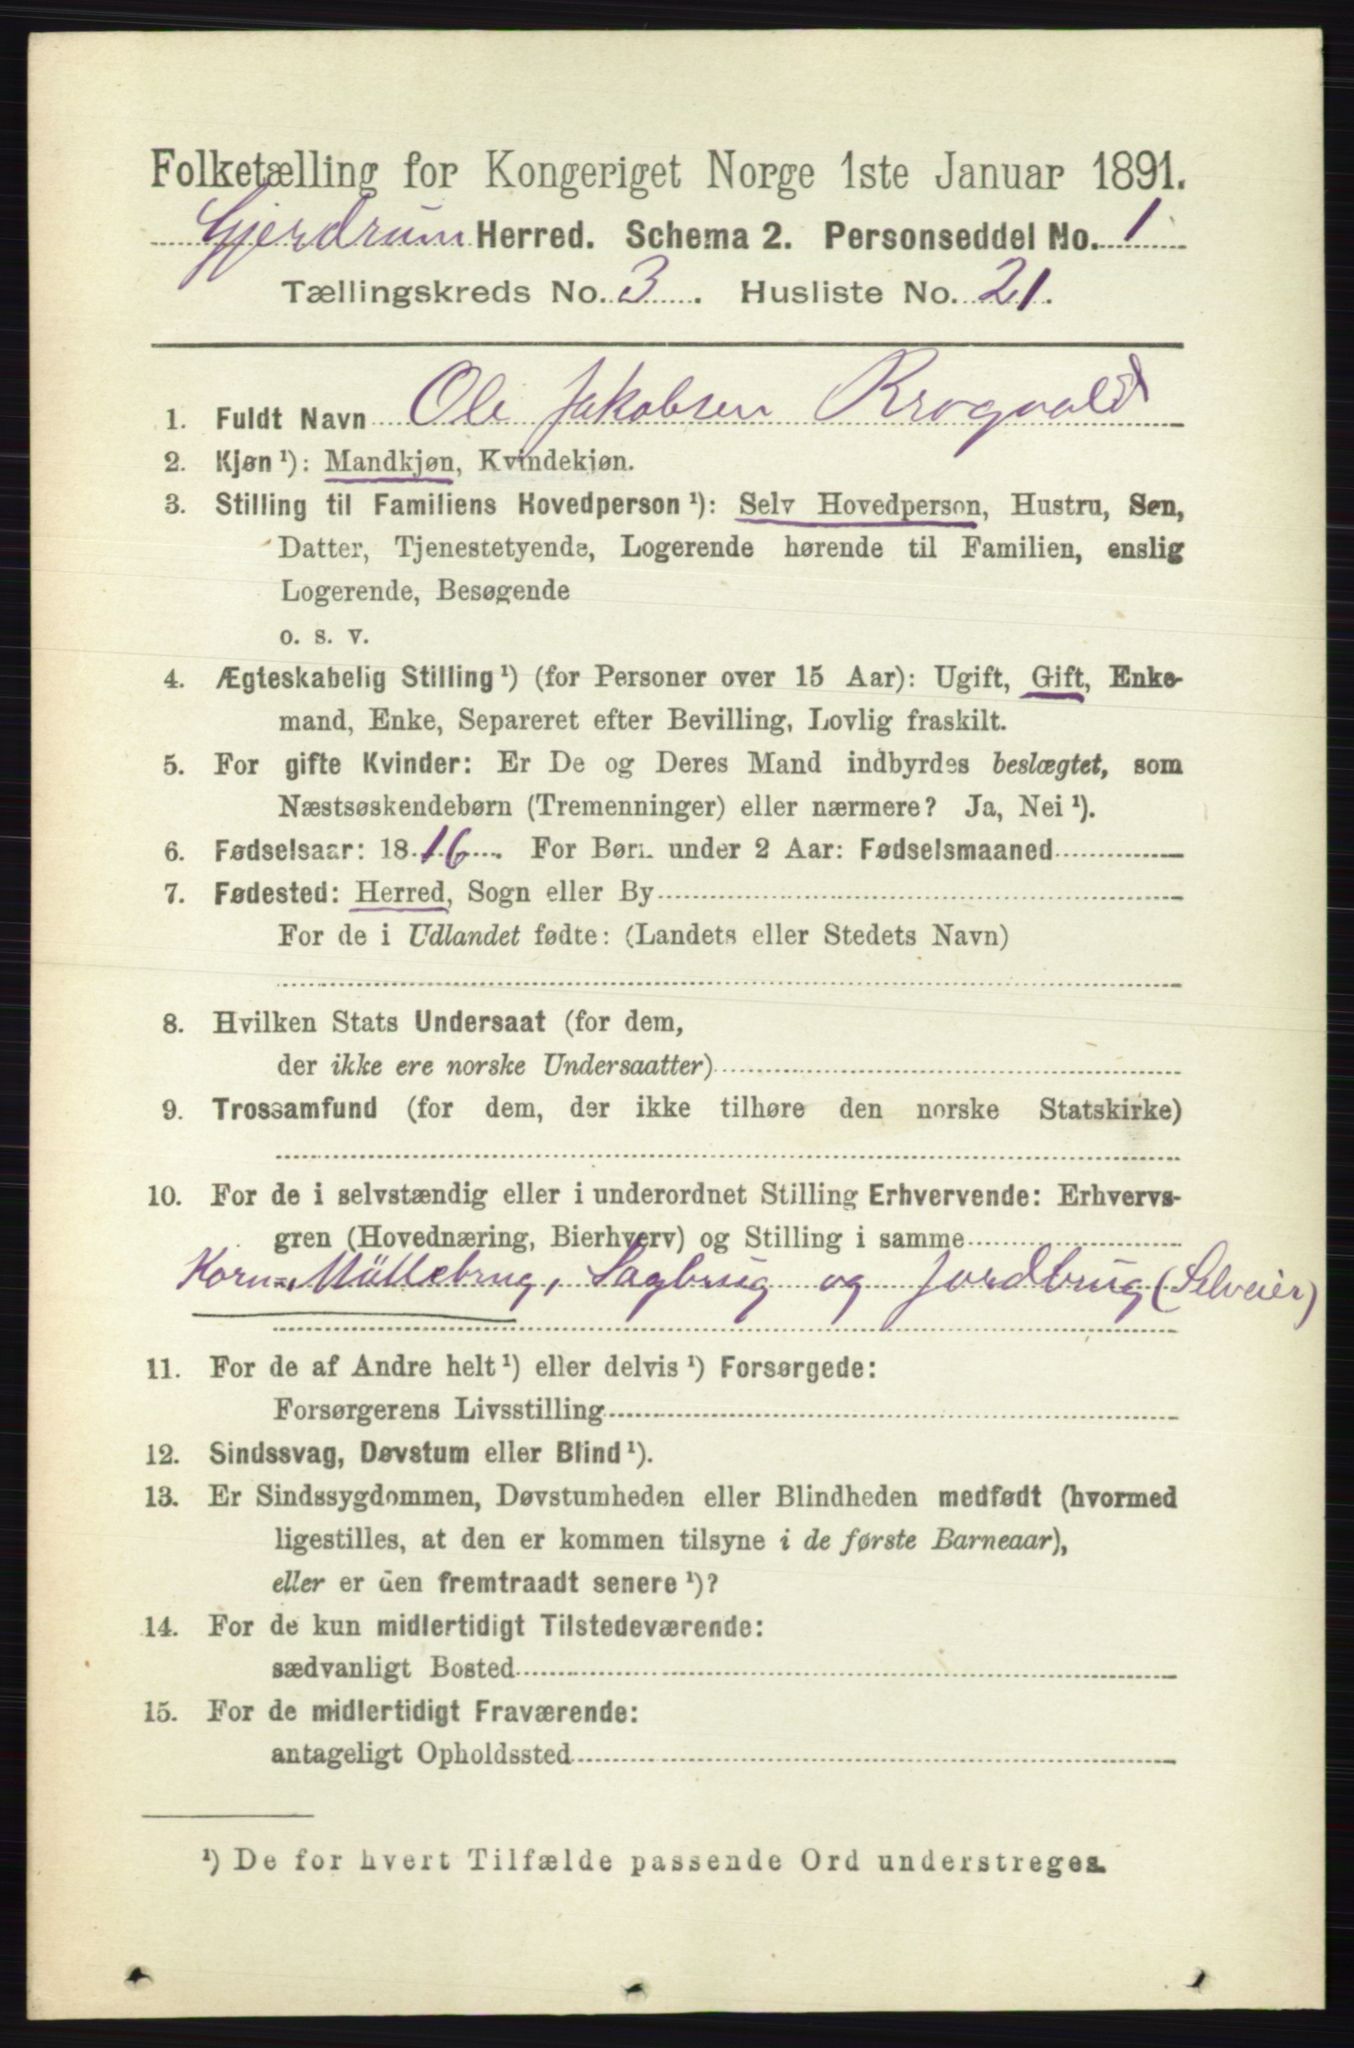 Folketælling for Kongeriget Norge 1ste Januar 1891.
Gjerdrum Herred. Schema 2. Personseddel No. 1
Tællingskreds No. 3. Husliste No. 21.
1. Fuldt Navn Ole Jakobsen Krogvold
2. Kjøn ¹): Mandkjøn, Kvindekjøn.
3. Stilling til Familiens Hovedperson ¹): Selv Hovedperson, Hustru, Søn,
Datter, Tjenestetyende, Logerende hørende til Familien, enslig
Logerende, Besøgende
o. s. v.
4. Ægteskabelig Stilling ¹) (for Personer over 15 Aar): Ugift, Gift, Enke-
mand, Enke, Separeret efter Bevilling, Lovlig fraskilt.
5. For gifte Kvinder: Er De og Deres Mand indbyrdes beslægtet, som
Næstsøskendebørn (Tremenninger) eller nærmere? Ja, Nei ¹).
6. Fødselsaar: 1816. For Børn under 2 Aar: Fødselsmaaned
7. Fødested: Herred, Sogn eller By
For de i Udlandet fødte: (Landets eller Stedets Navn)
8. Hvilken Stats Undersaat (for dem,
der ikke ere norske Undersaatter)
9. Trossamfund (for dem, der ikke tilhøre den norske Statskirke)
10. For de i selvstændig eller i underordnet Stilling Erhvervende: Erhvervs-
gren (Hovednæring, Bierhverv) og Stilling i samme
Korn-Müllebrug, Sagbrug og Jordbrug (Selveier)
11. For de af Andre helt ¹) eller delvis ¹) Forsørgede:
Forsørgerens Livsstilling
12. Sindssvag, Døvstum eller Blind ¹).
13. Er Sindssygdommen, Døvstumheden eller Blindheden medfødt (hvormed
ligestilles, at den er kommen tilsyne i de første Barneaar),
eller er den fremtraadt senere ¹)?
14. For de kun midlertidigt Tilstedeværende:
sædvanligt Bosted
15. For de midlertidigt Fraværende:
antageligt Opholdssted
¹) De for hvert Tilfælde passende Ord understreges.